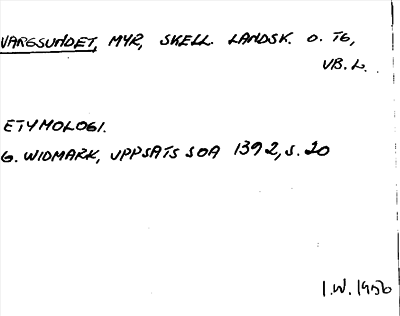 VARGSUNDET, MYR, SKELL. LANDSK. O. TG,
VB. L.
ETYMOLOGI.
G. WIDMARK, UPPSATS SOA 1392, S. 20
I.W. 1956